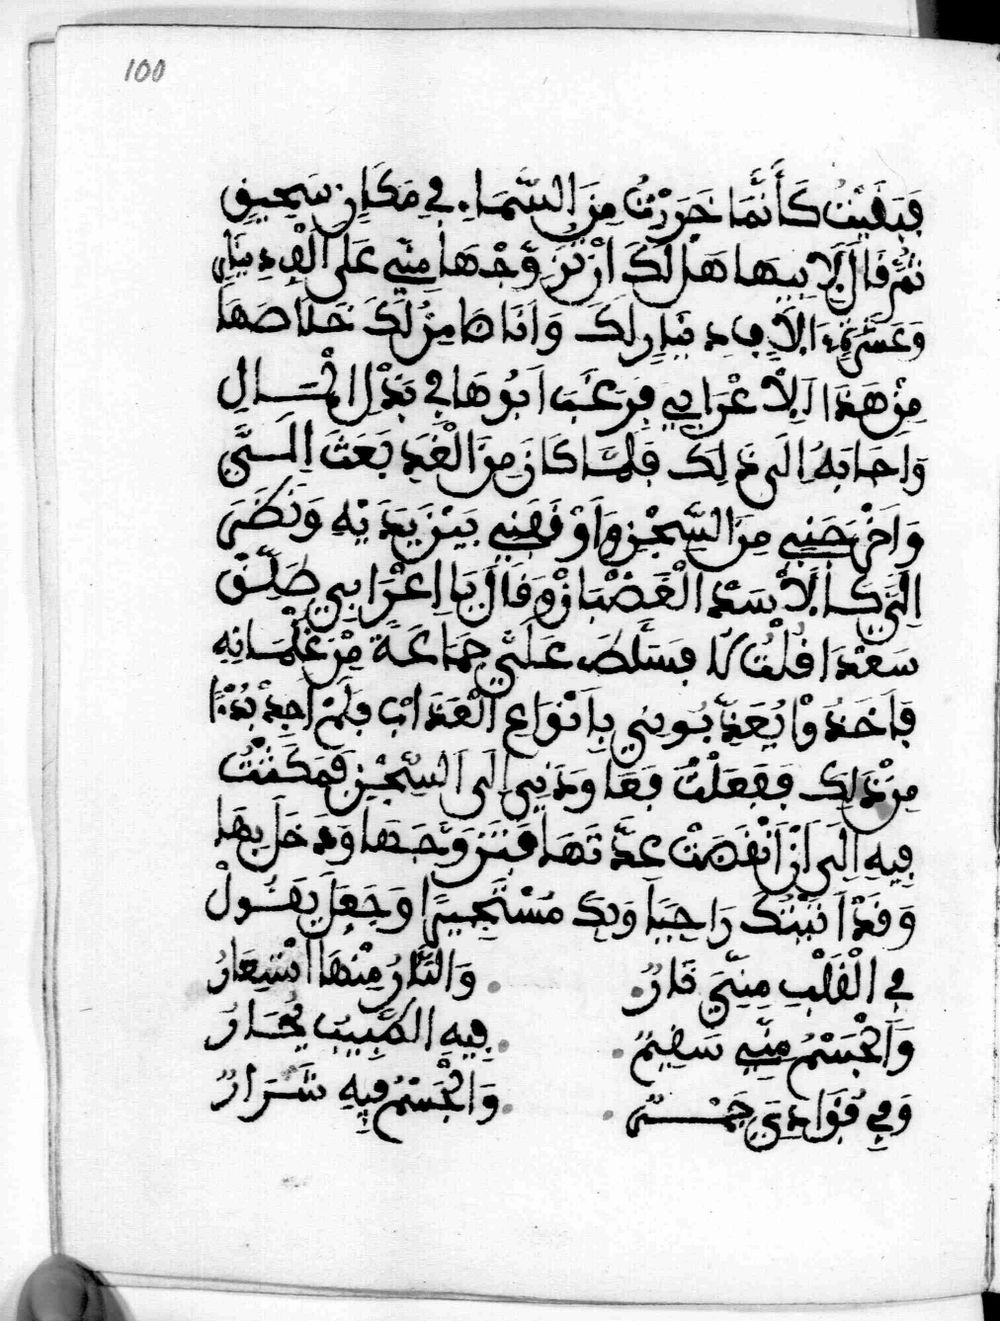 100
فَبَقَيْتُ كَأَنَّمَا خَرَرْتُ مِنَ السَّمَاءِ فِي مَكَانٍ سَحِيقٍ
ثُمَّ قَالَ لِأَبِيهَا هَلْ لَكَ أَنْ تُزَوِّجْهَا مِنِّي عَلَى أَلْفِ دِينَارٍ
وَعَشَرَةِ ءَالَافِ دِينَارٍ لَكَ وَأَنَا ضَامِنٌ لَكَ خَلَاصَهَا
مِنْ هَذَا الْأَعْرَابِي فَرَغَبَ أَبُوهَا فِي بَذْلِ الْمَالِ
وَأَجَابَهُ إِلَى ذَلِكَ فَلَمَّا كَانَ مِنَ الْغَدِ بَعَثَ إِلَيَّ
وَأَخْرَجَنِي مِنَ السِّجْنِ وَأَوْقَفَنِي بَيْنَ يَدَيْهِ وَنَظَرَ
إِلَيَّ كَالْأَسَدِ الْغَضْبَانْ وَقَالَ يَا أَعْرَابِي طَلِّقْ
سَعْدَا قُلْتُ لَا فَسَلَّطَ عَلَيَّ جَمَاعَةً مِنْ غِلْمَانِهِ
فَأَخَذُوا يُعَذِّبُونِي بِأَنْوَاعِ الْعَذَابِ فَلَمْ أَجِدْ بُدًّا
مِنْ ذَلِكَ فَفَعَلْتُ فَعَاوَدَنِي إِلَى السِّجْنِ فَمَكَثْتُ
فِيهِ إِلَى أَنْ أَنْقَضَتْ عِدَّتَهَا فَتَزَوَّجَهَا وَدَخَلَ بِهَا
وَقَدْ أَتَيْتُكَ رَاجِيًا وَبِكَ مُسْتَجِيرًا وَجَعَلَ يَقُولُ
فِي الْقَلْبِ مِنِّيَ نَارٌ . وَالنَّارُ مِنْهَا اسْتِعَارُ
وَالْجَسْمُ مِنِّي سَقِيمٌ . فِيهِ الطَّبِيبُ يُحَارُ
وَفِي فُؤَادِيَ جَمْرٌ . وَالْجَسْمُ فِيهِ شَرَارٌ